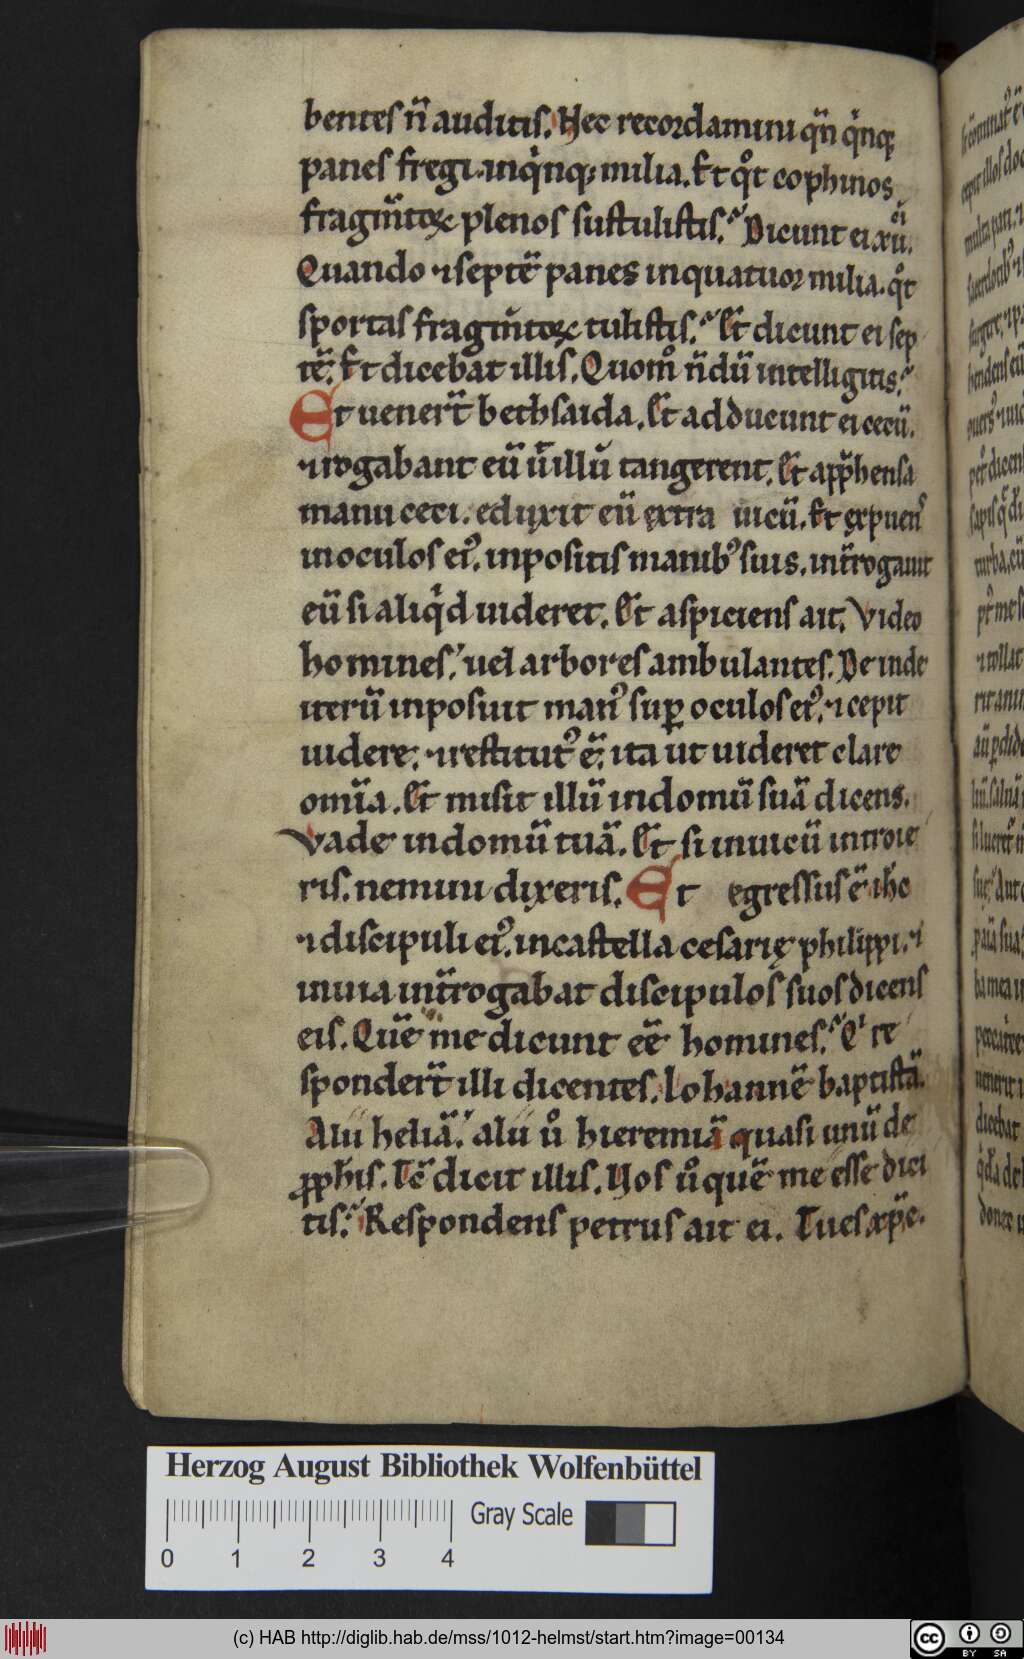 bentes n̄ auditis. Hec recordamini qn̄ qͥnq;
panes fregi. in qͥnq; milia. Et qͦt cophinos
fragm̄toꝝ plenos sustulistis? Dicunt ei xii.
Quando ⁊ septē panes in quatuor milia. qͦt
sportas fragm̄toꝝ tulistis? Et dicunt ei sep
tē. Et dicebat illis. Quomͦ n̄dū intelligitis?
Et uener̄t bethsaida. Et adducunt ei cecū.
⁊ rogabant eū ū illū tangerent. Et app̄hensa
manu ceci. eduxit eū extra uicū. Et expuenˢ
in oculos eiꝰ. inpositis manibꝰ suis. int̄rogauit
eū si aliqͥd uideret. Et aspiciens ait. Video
homines. uel arbores ambulantes. De inde
iterū inposuit manꝰ sup̄ oculos eiꝰ. ⁊ cepit
uidere. ⁊ restitutꝰ ē. ita ut uideret clare
om̄ia. Et misit illū in domū suā dicens.
Vade in domū tuā. Et si in uicū introie
ris. nemini dixeris. Et egressus ē ih̄c
⁊ discipuli eiꝰ. in castella cesarię philippi. ⁊
in uia int̄rogabat discipulos suos dicens
eis. Quē me dicunt eē homines? Qͥ re
sponder̄t illi dicentes. Iohannē baptistā.
Alii heliā. alii ūͦ hieremiā quasi unū de
ꝓph̄is. Tc̄ dicit illis. Vos ūͦ quē me esse dici
tis? Respondens petrus ait ei. Tu es xp̄c.
Herzog August Bibliothek Wolfenbüttel
Gray Scale
0 1 2 3 4
(c) HAB http://diglib.hab.de/mss/1012-helmst/start.htm?image=00134
cc BY SA